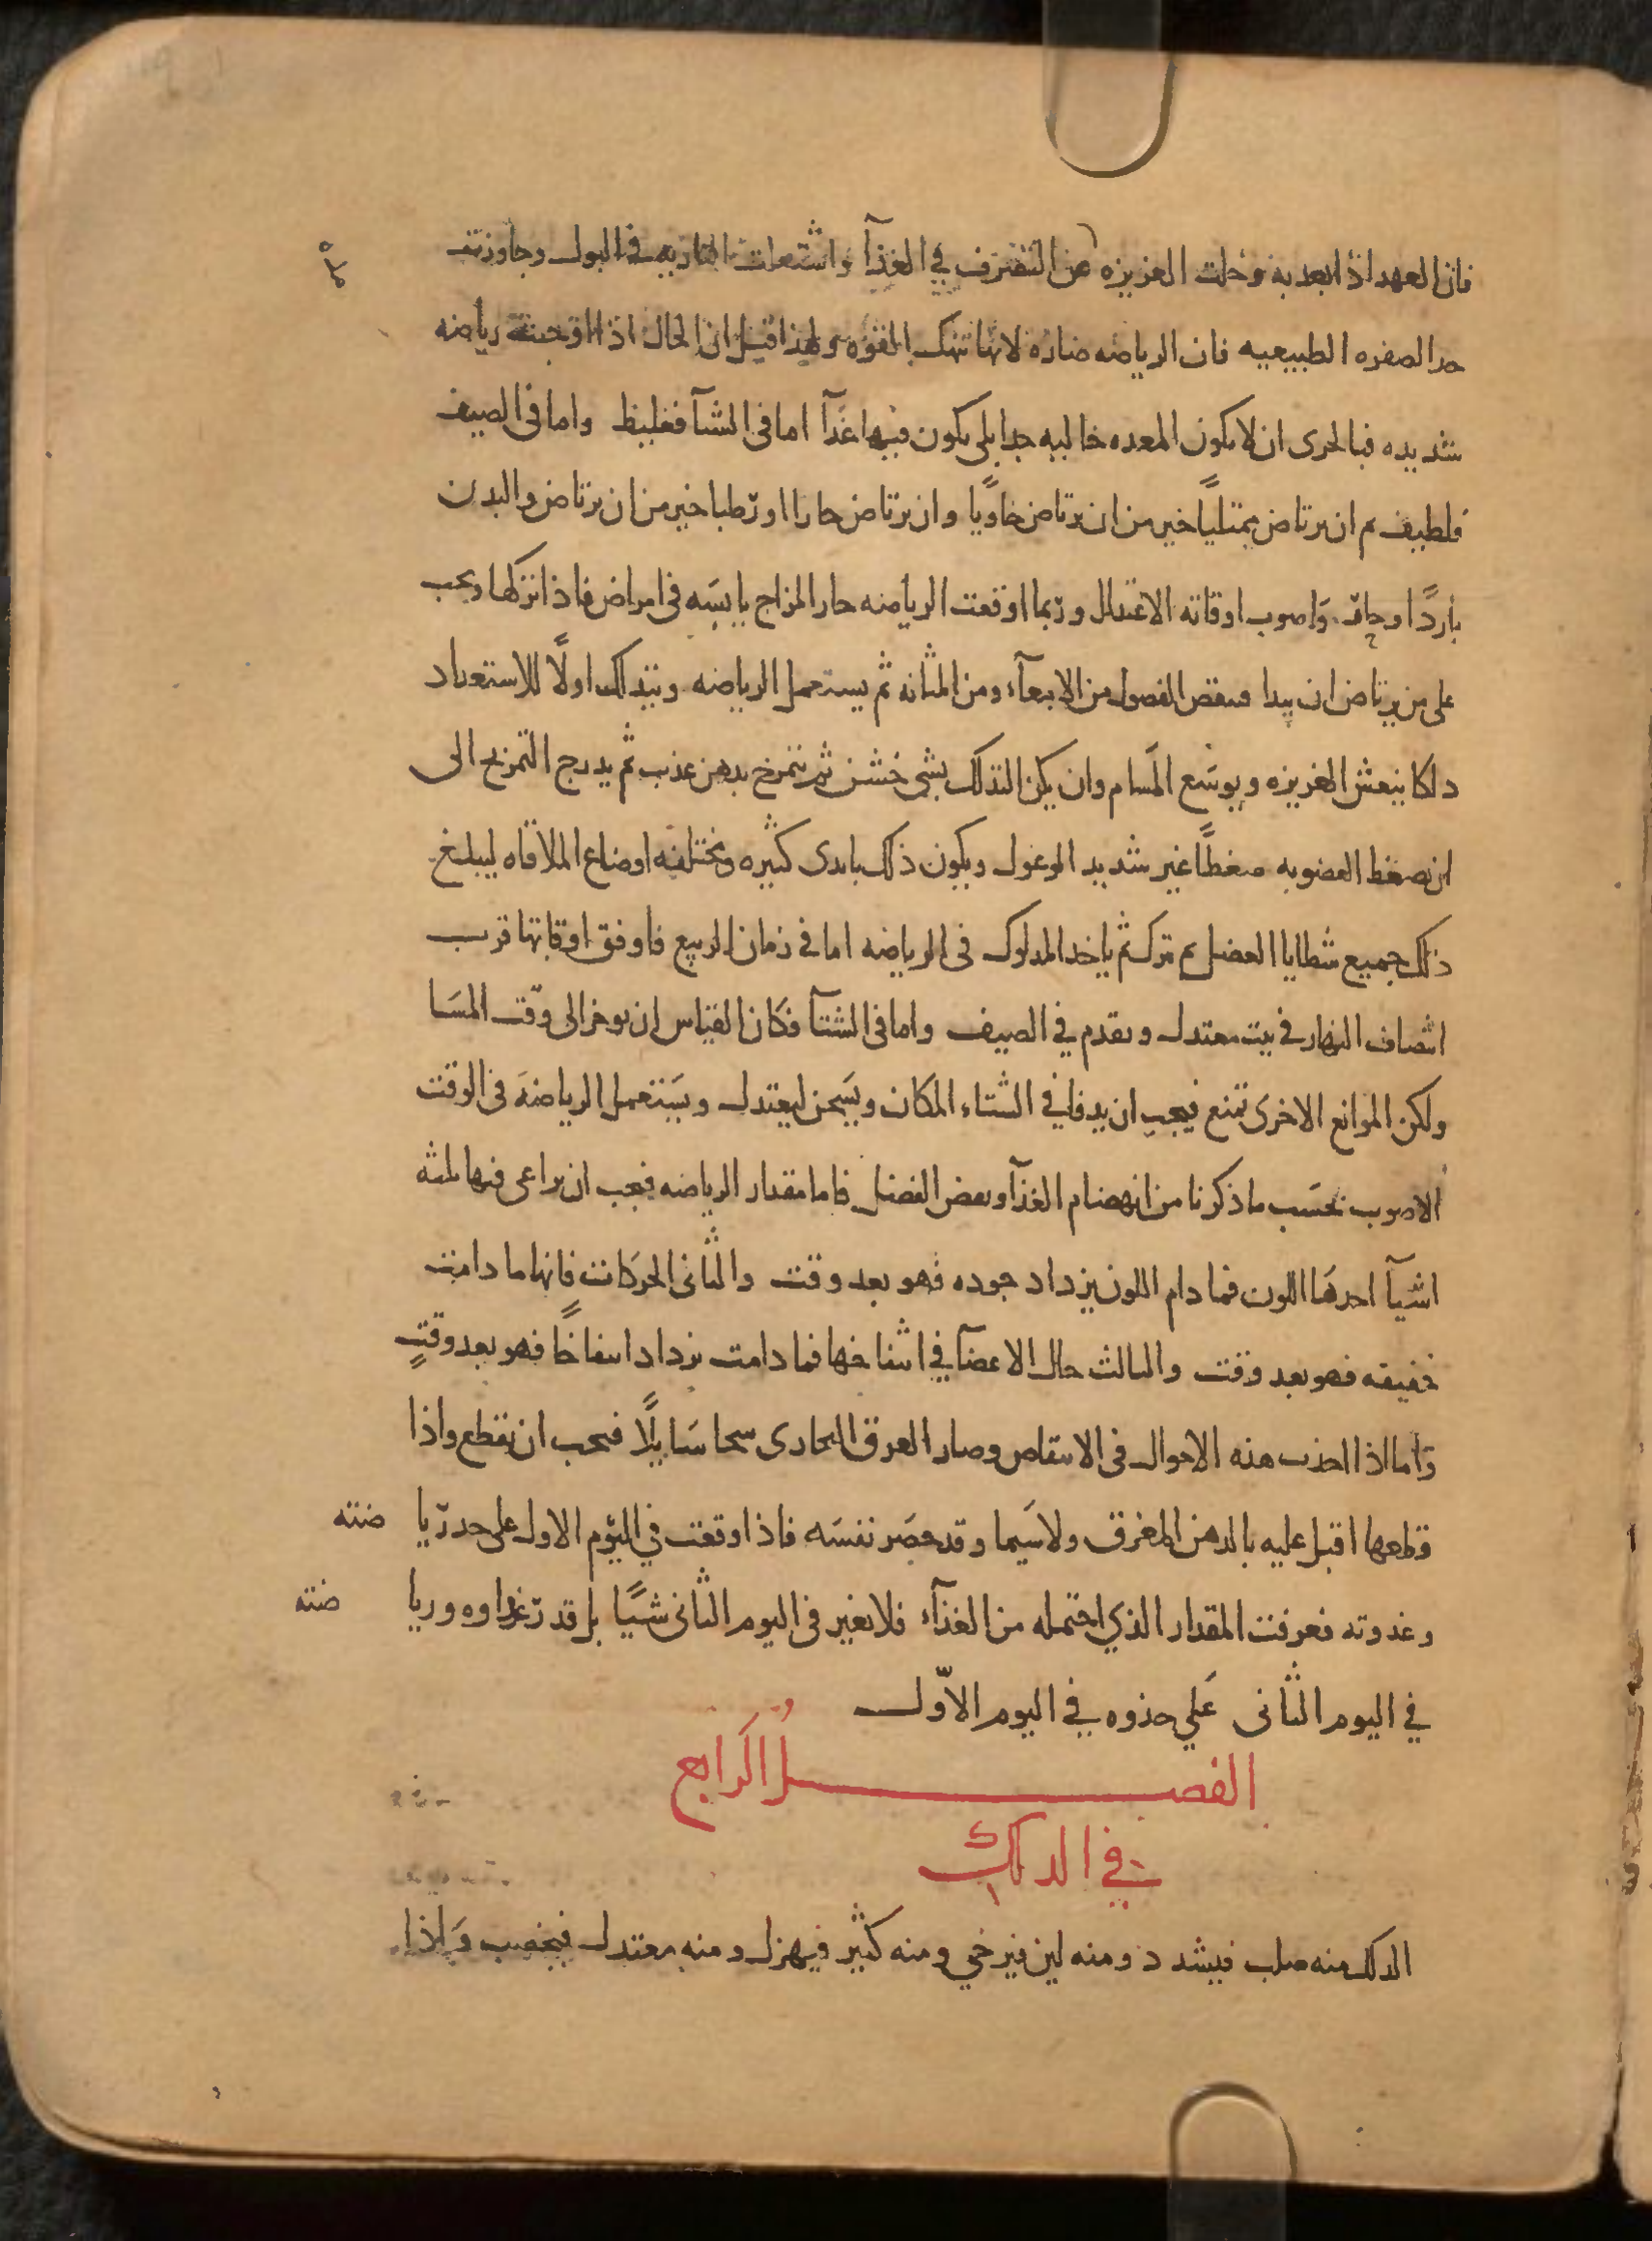 فان العهد اذا بعد به وخلت الغريزه عن التصرف في الغذآ واشتعلت الناريه في البول وجاوزت
حد الصفره الطبيعيه فان الرياضه ضاره لانها تنهك القوه ولهذا قيل ان الحال اذا اوجبت رياضه
شديده فبالحرى ان لا يكون المعده خاليه جدا بل يكون فيها غذآ اما فى الشتآ فغليظ واما فى الصيف
فلطيف ثم ان يرتاض ممتليًا خير من ان يرتاض خاويًا وان يرتاض حارا او رطبا خير من ان يرتاض والبدن
باردًا وجاف واصوب اوقاته الاعتدال وربما اوقعت الرياضه حار المزاج يابسه فى امراض فاذا تركها ويجب
على من يرتاض ان يبدا فينقص الفضول من الامعآء ومن المثانه ثم يستعمل الرياضه ويتدلك اولًا للاستعداد
دلكا ينعش الغريزه ويوسع المسام وان يكن التدلك بشى خشن ثم يتمرخ بدهن عذب ثم يدرج التمريخ الى
ان يضغط العضو به ضغطًا غير شديد الوغول ويكون ذلك بايدى كثيره ومختلفه اوضاع الملاقاه ليبلغ
ذلك جميع شظايا العضل ثم يترك ثم ياخذ المدلوك فى الرياضه اما فى زمان الربيع فاوفق اوقاتها قرب
انتصاف النهار فى بيت معتدل ويقدم في الصيف واما فى الشتآ فكان القياس ان يوخر الى وقت المسا
ولكن الموانع الاخرى تمنع فيجب ان يدفا في الشتاء المكان ويسخن ليعتدل ويستعمل الرياضة فى الوقت
الاصوب بحسب ما ذكرنا من انهضام الغذآ ونفض الفضل فاما مقدار الرياضه فيجب ان يراعى فيها ثلثه
اشيآ احدها اللون فما دام اللون يزداد جوده فهو بعد وقت والثانى الحركات فانها ما دامت
خفيفه فهو بعد وقت والثالث حال الاعضآ في انتفاخها فما دامت يزداد انتفاخًا فهو بعد وقتٍ
واما اذا اخذت هذه الاحوال فى الانتقاص وصار العرق البخارى سحا سايلًا فيجب ان يقطع واذا
قطعها اقبل عليه بالدهن المعرق ولا سيما وقد حصر نفسه فاذا وقعت في اليوم الاول على حد ريا ضته
وغدوته فعرفت المقدار الذي احتمله من الغذآء فلا تغير فى اليوم الثانى شيًا بل قدر غداوه وريا ضته
في اليوم الثانى على حذوه في اليوم الاوّل
الفصل الرابع
في الدلك
الدلك منه صلب فيشدد ومنه لين فيرخي ومنه كثير فيهزل ومنه معتدل فيخصب واذا